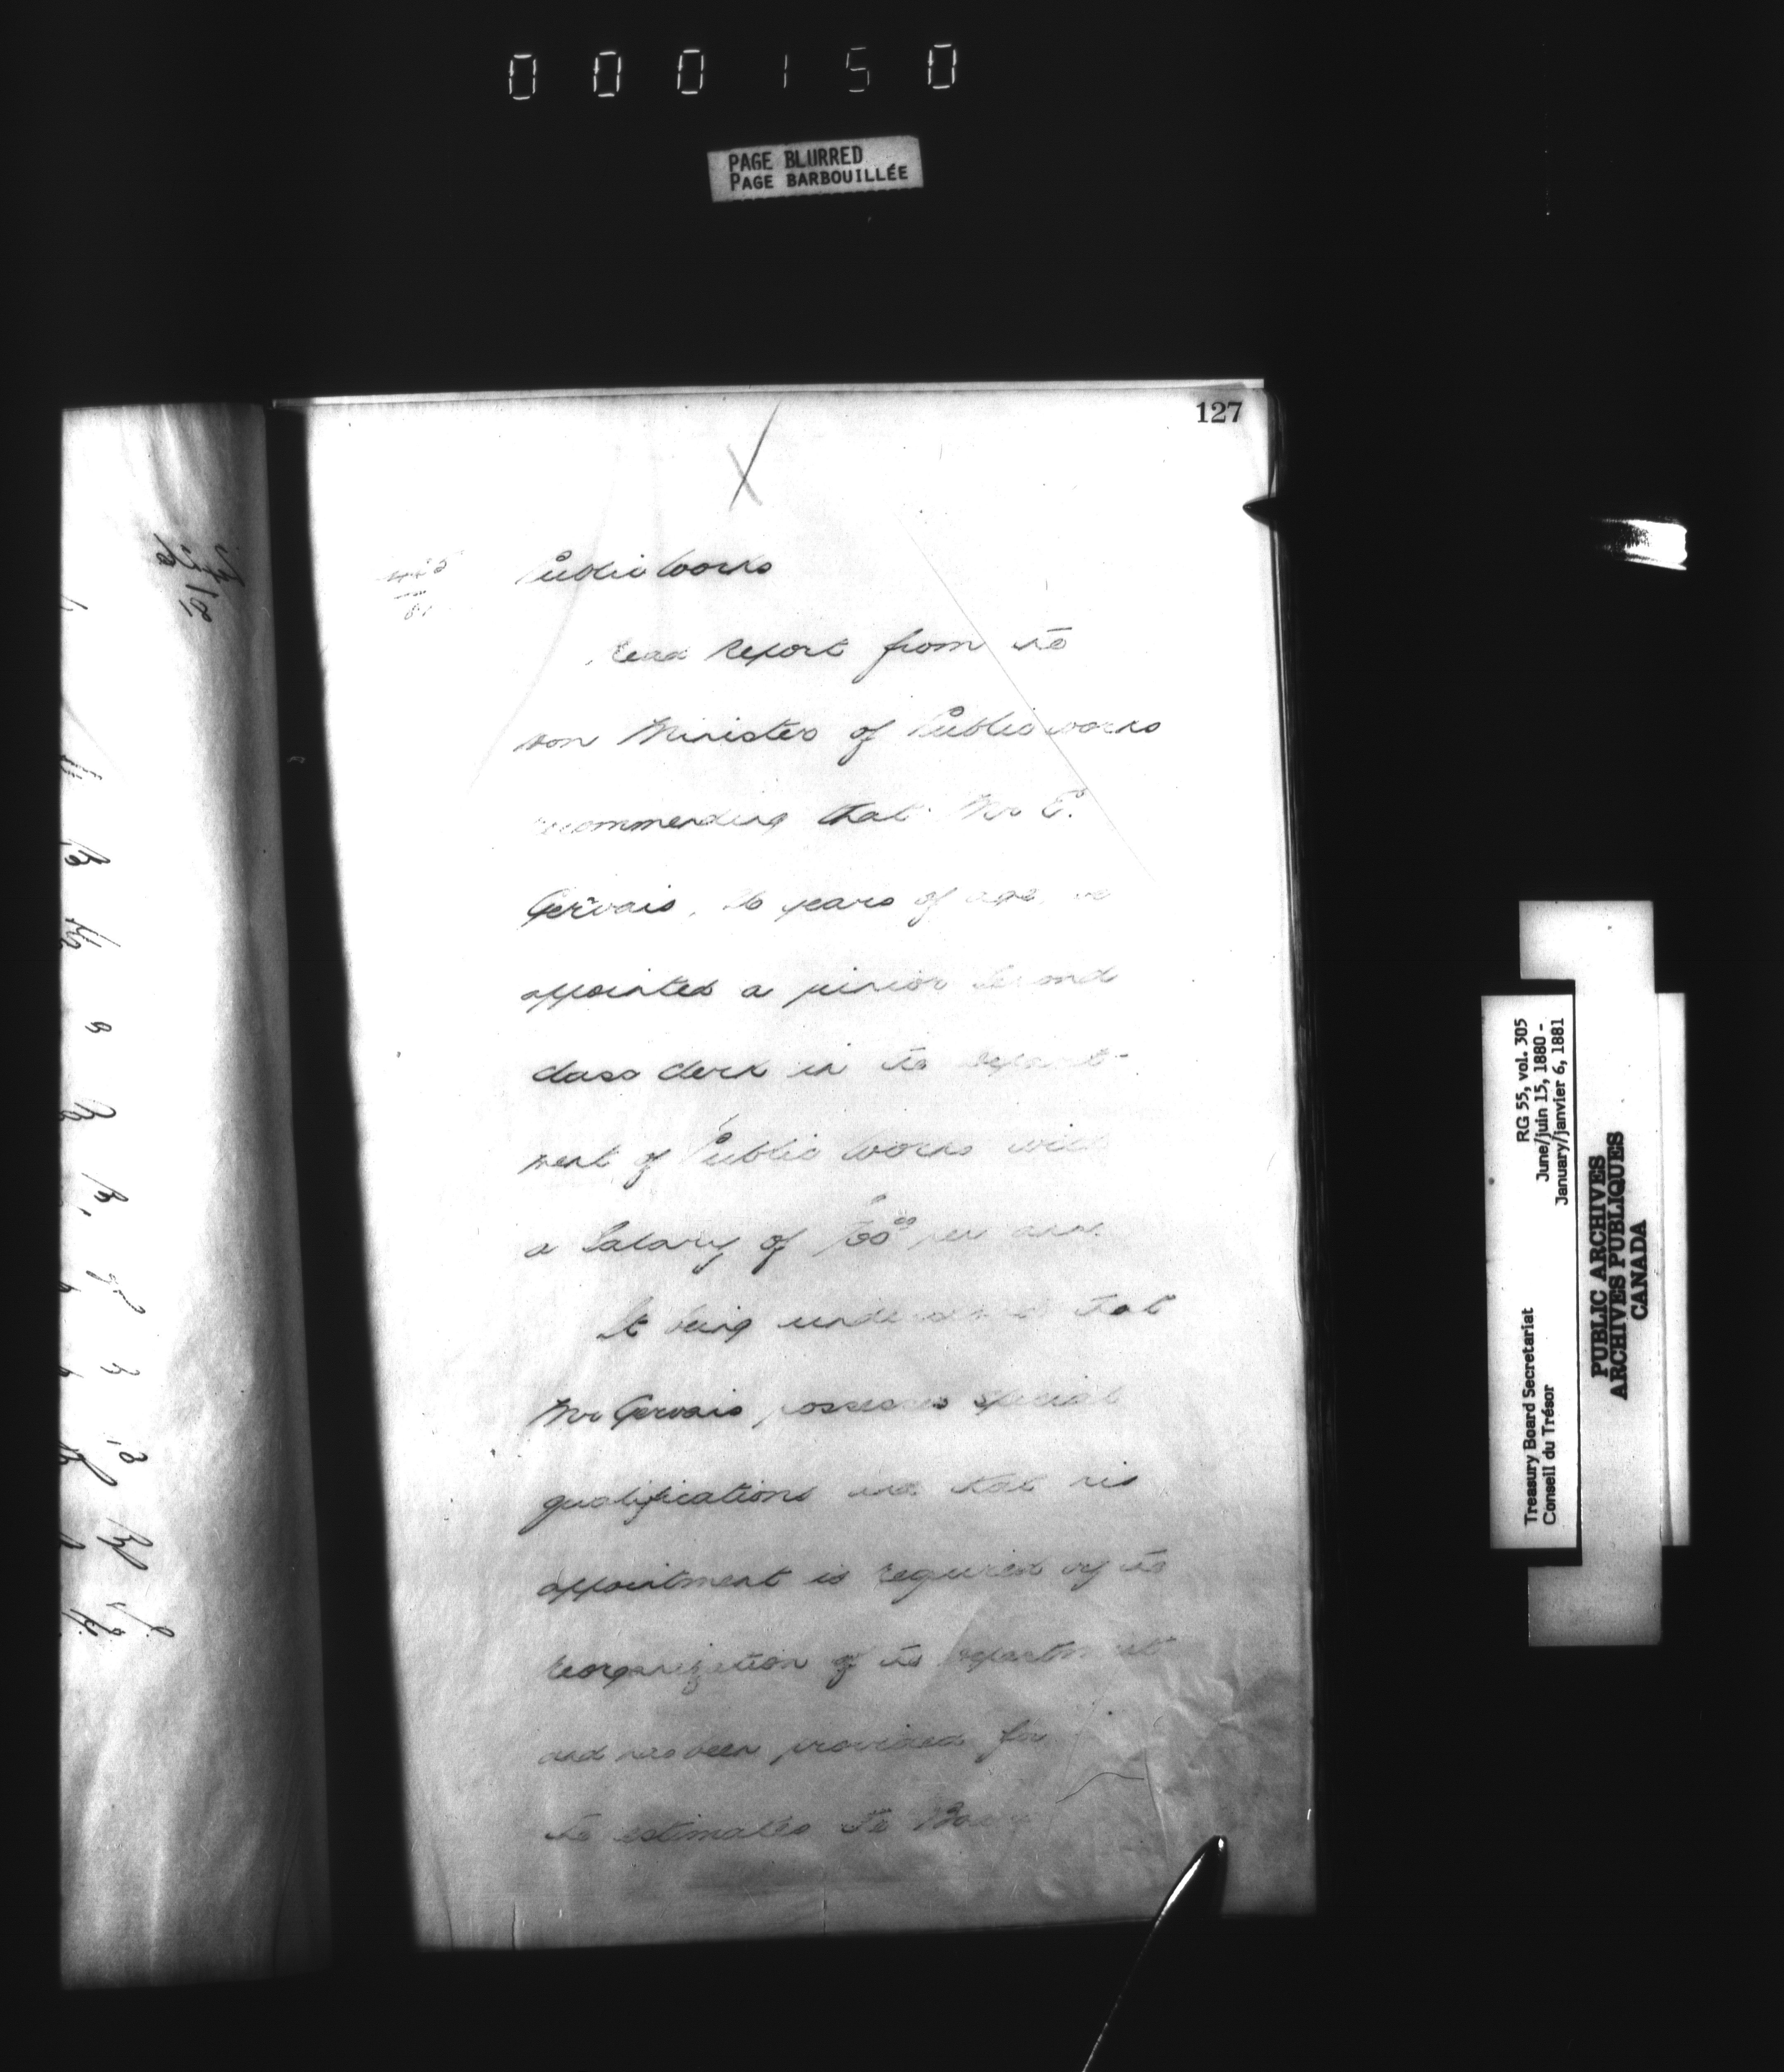 000150
PAGE BLURRED
PAGE BARBOUILLÉE
127
Public Works
Read Report from the
Hon Minister of Public works
recommending that Mr E.
Gervais, years of age be
appointed a junior Second
class clerk in the Depart-
ment of Public Works with
a Salary of per ann.
It being understood that
Mr Gervais possesses special
qualifications and that his
appointment is required by the
reorganization of the Department
and has been provided for
the estimates the Board
RG 55, vol. 305
June/juin 15, 1880 -
January/janvier 6, 1881
Treasury Board Secretariat
Conseil du Trésor
PUBLIC ARCHIVES
ARCHIVES PUBLIQUES
CANADA